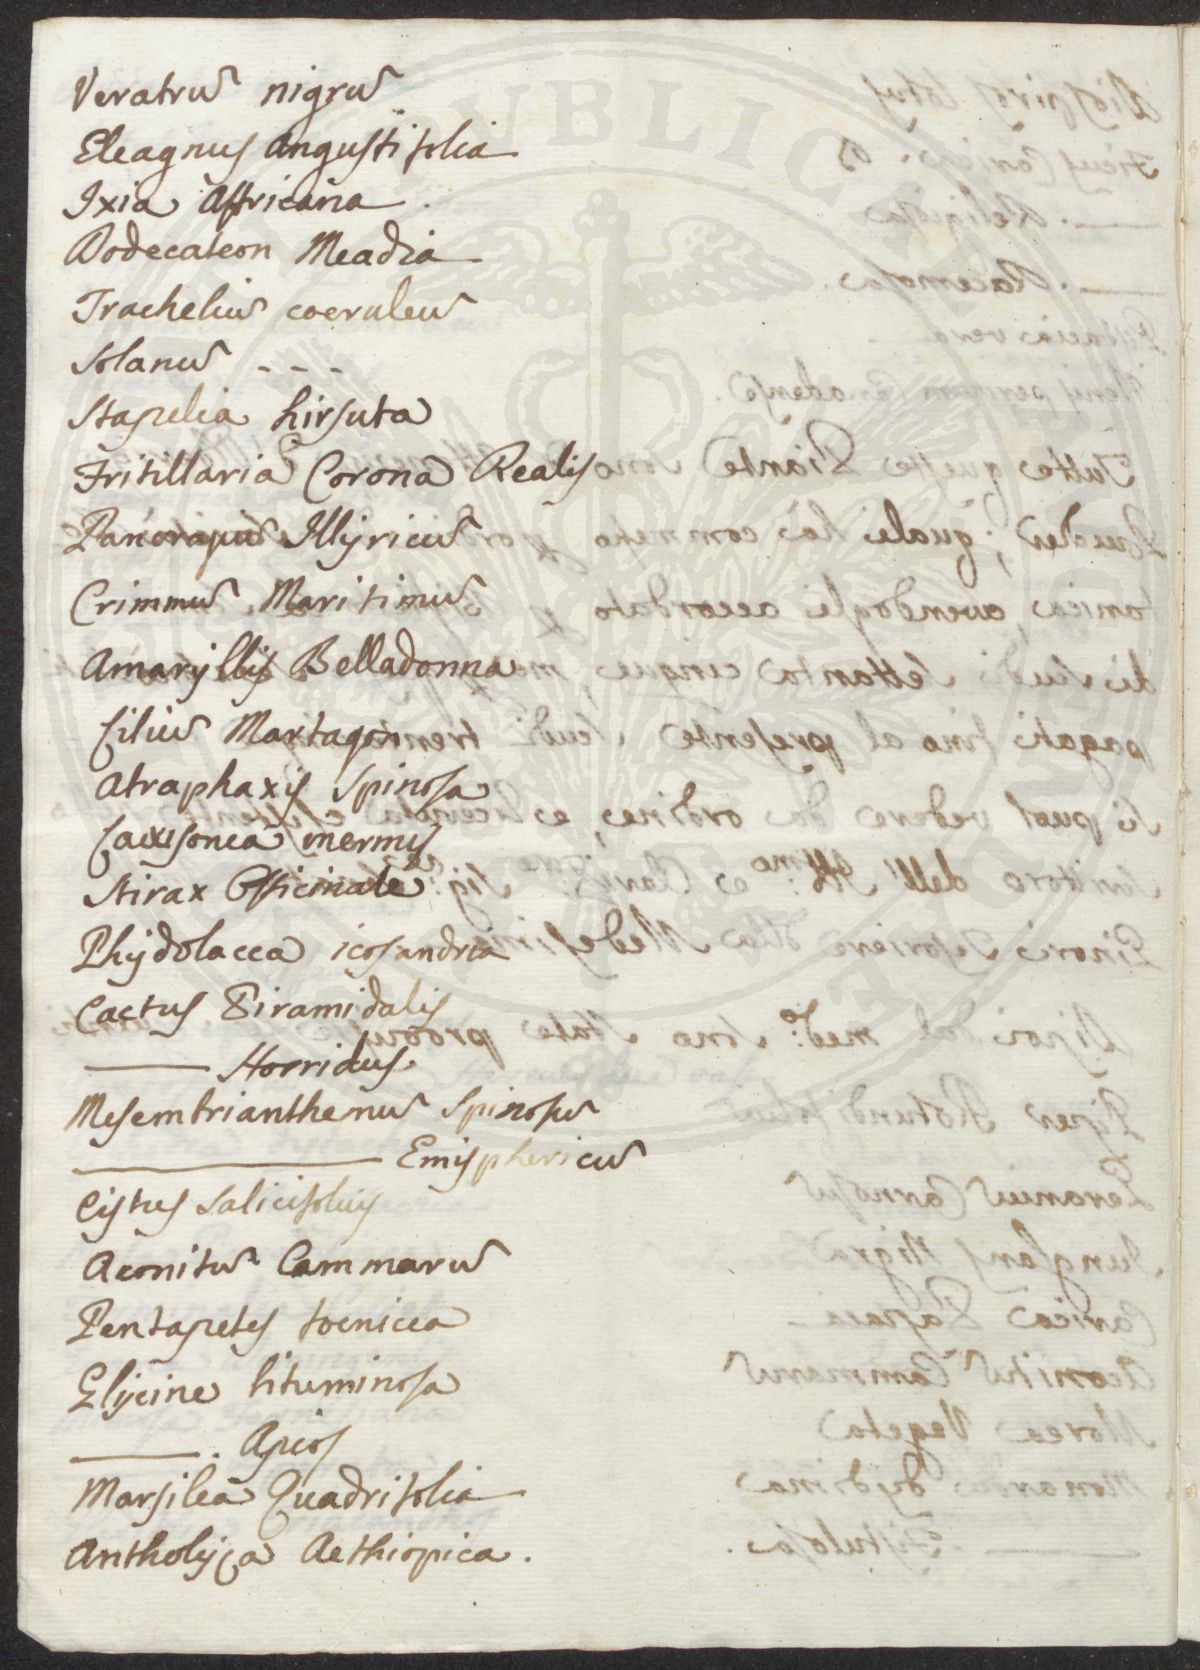 Veratrū nigrū
Eleagnus Angustifolia
Ixia Affricana.
Dodecateon Meadia
Tracheliū coeruleū
Solanū - - -
Stapelia hirsuta
Fritillaria Corona Realis
Pancrapiū Illyricū
Crimmū Maritimū
Amaryllis Belladonna
Liliū Martagon
Atraphaxis Spinosa
inermis
Stirax Officinale
Phydolacca icosandria
Cactus Piramidalis
——— Horridus.
Mesembrianthenū Spinosū
——— Emisphericū
Cistus Salicifolius
Aconitū Cammarū
Pentapetes foenicea
Glycine bituminosa
——— . Apios
Marsilea Quadrifolia
Antholyça Aethiopica.